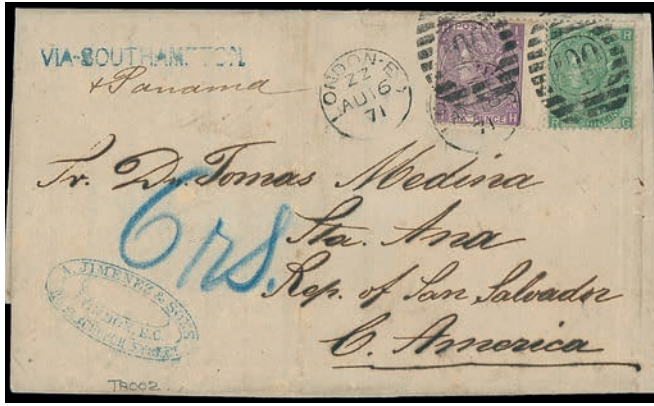 VIA-SOUTHAMPTON
& Panama
LONDON-E.C
ZZ
AU 16
71
POSTAGE
SIX PENCE
H
R
R
G
71
Sr. Dn. Tomas Medina
Sta. Ana
Rep. of San Salvador
C. America
6 rs.
A. JIMENEZ & SONS
LONDON, E.C.
TA002